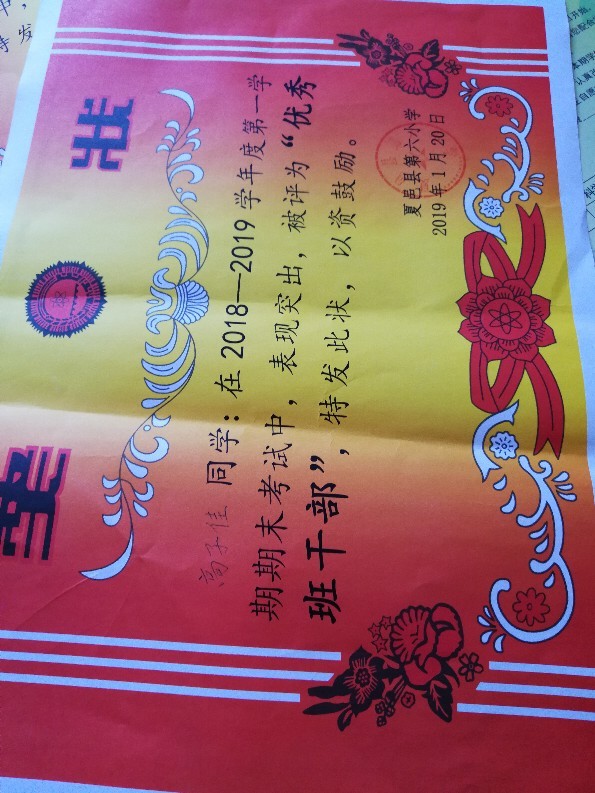 奖状
高子佳 同学：在2018—2019学年度第一学
期期末考试中，表现突出，被评为“优秀
班干部”，特发此状，以资鼓励。
夏邑县第六小学
2019年1月20日